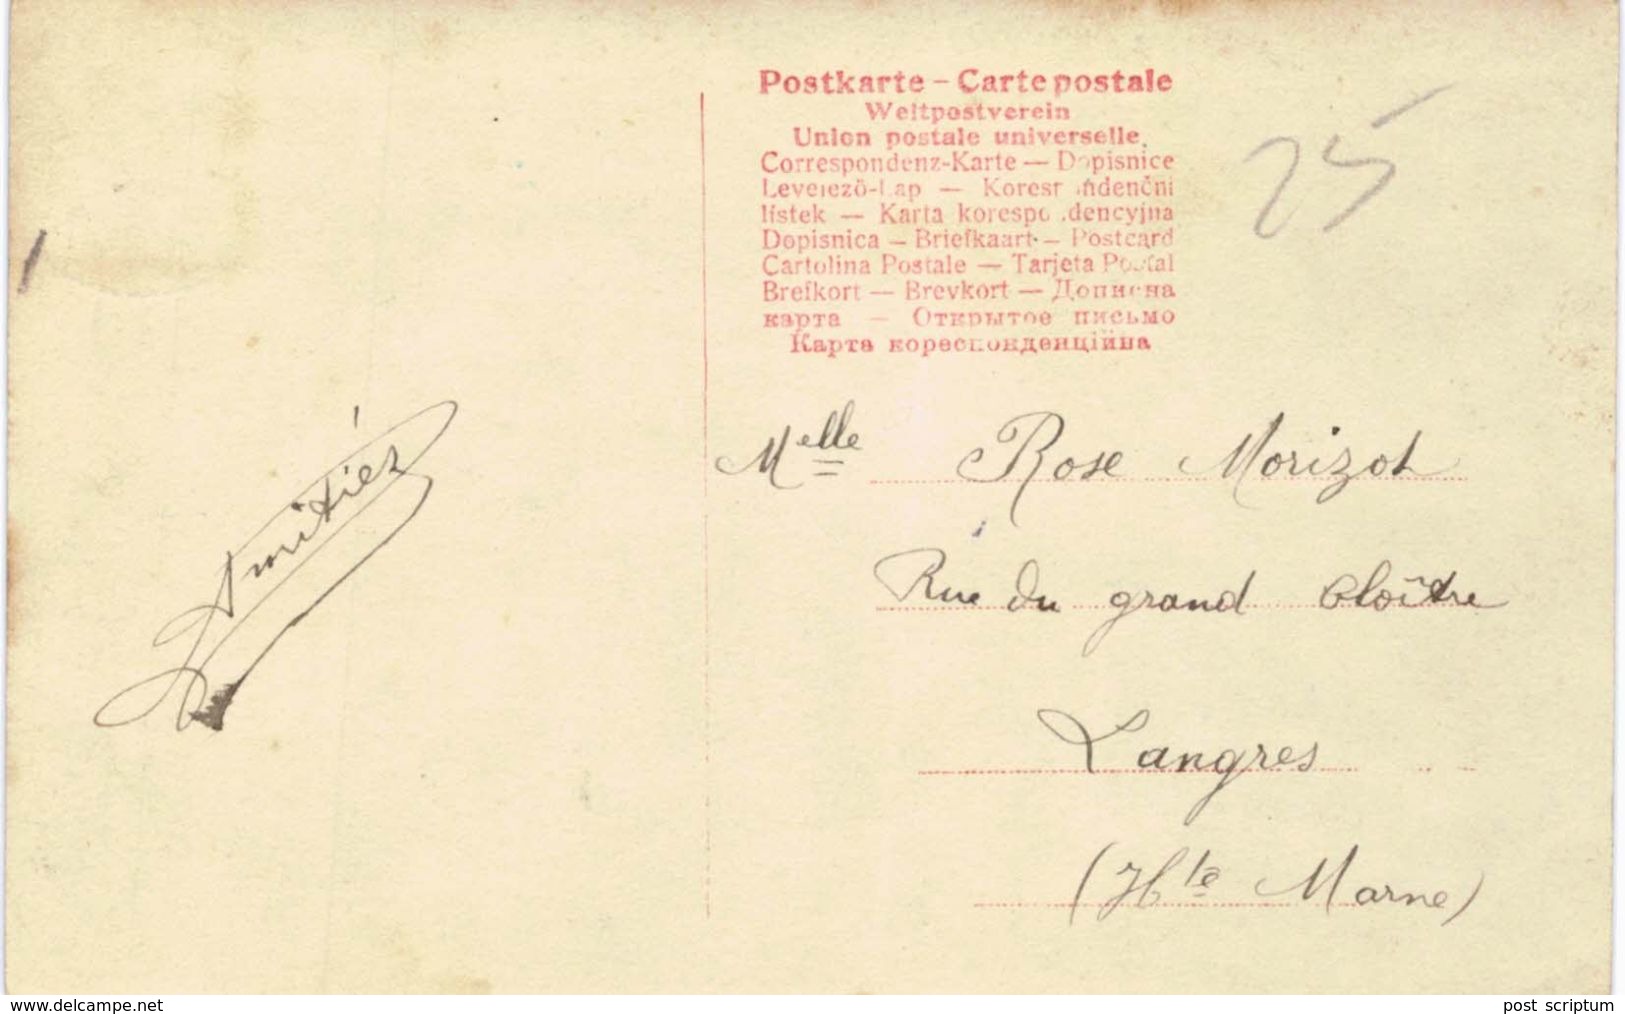 Postkarte – Carte postale
Weltpostverein
Union postale universelle.
Correspondenz-Karte — Dopisnice
Levelező-Lap — Korespondenční
lístek — Karta korespondencyjna
Dopisnica — Briefkaart — Postcard
Cartolina Postale — Tarjeta Postal
Brefkort — Brevkort — Дописна
карта — Открытое письмо
Карта кореспонденційна
25
Amitiés
Melle Rose Morizot
Rue du grand cloître
Langres
(Hte Marne)
www.delcampe.net
post scriptum